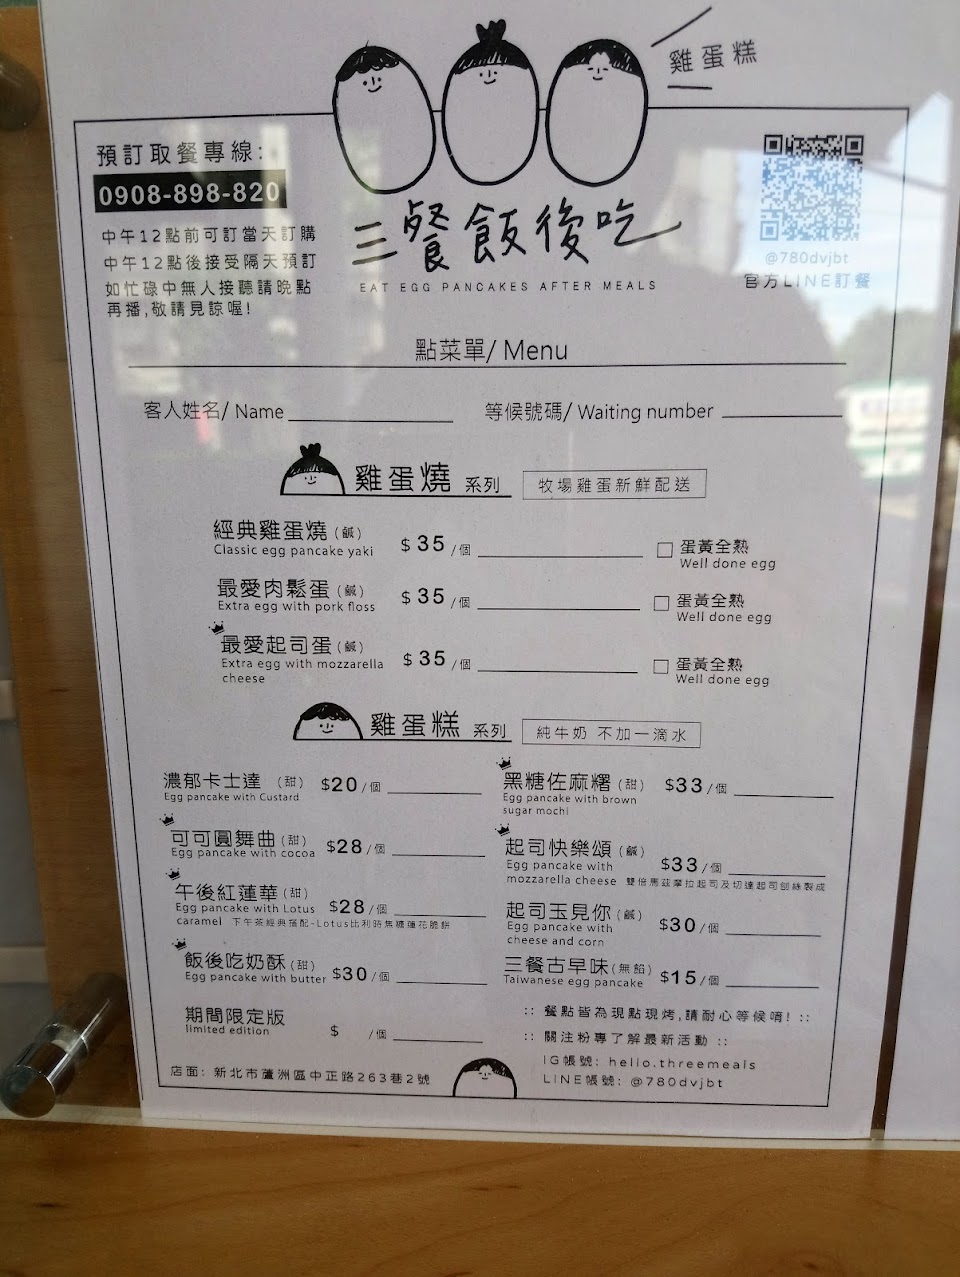 雞蛋糕
預訂取餐專線:
0908-898-820
中午12點前可訂當天訂購
中午12點後接受隔天預訂
如忙碌中無人接聽請晚點
再播,敬請見諒喔!
三餐飯後吃
EAT EGG PANCAKES AFTER MEALS
@780dvjbt
官方LINE訂餐
點菜單/ Menu
客人姓名/ Name
等候號碼/ Waiting number
雞蛋燒 系列 牧場雞蛋新鮮配送
經典雞蛋燒(鹹) $35/個 蛋黃全熟
Classic egg pancake yaki Well done egg
最愛肉鬆蛋(鹹) $35/個 蛋黃全熟
Extra egg with pork floss Well done egg
最愛起司蛋(鹹) $35/個 蛋黃全熟
Extra egg with mozzarella Well done egg
cheese
雞蛋糕 系列 純牛奶 不加一滴水
濃郁卡士達 (甜) $20/個
Egg pancake with Custard
可可圓舞曲(甜) $28/個
Egg pancake with cocoa
午後紅蓮華(甜) $28/個
Egg pancake with Lotus
caramel 下午茶經典搭配-Lotus比利時焦糖蓮花脆餅
飯後吃奶酥(甜) $30/個
Egg pancake with butter
期間限定版 $ /個
limited edition
黑糖佐麻糬(甜) $33/個
Egg pancake with brown
sugar mochi
起司快樂頌(鹹) $33/個
Egg pancake with
mozzarella cheese 雙倍馬茲摩拉起司及切達起司刨絲製成
起司玉見你(鹹) $30/個
Egg pancake with
cheese and corn
三餐古早味(無餡) $15/個
Taiwanese egg pancake
:: 餐點皆為現點現烤,請耐心等候唷! ::
:: 關注粉專了解最新活動 ::
IG帳號: hello.threemeals
LINE帳號: @780dvjbt
店面: 新北市蘆洲區中正路263巷2號